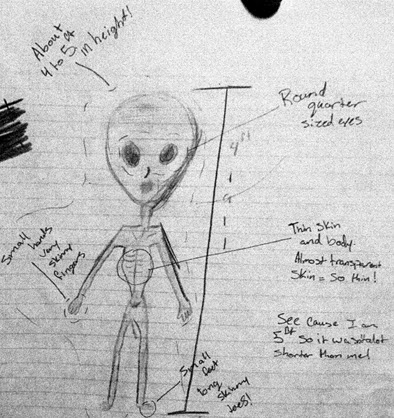 About
4 to 5 ft
in height!
Round
quarter
sized eyes
4ft
Small hands
very
skinny
fingers
Thin skin
and body.
Almost transparent
skin = so thin!
See cause I am
5 ft so it was
shorter than me!
Small
feet
long
skinny
toes!